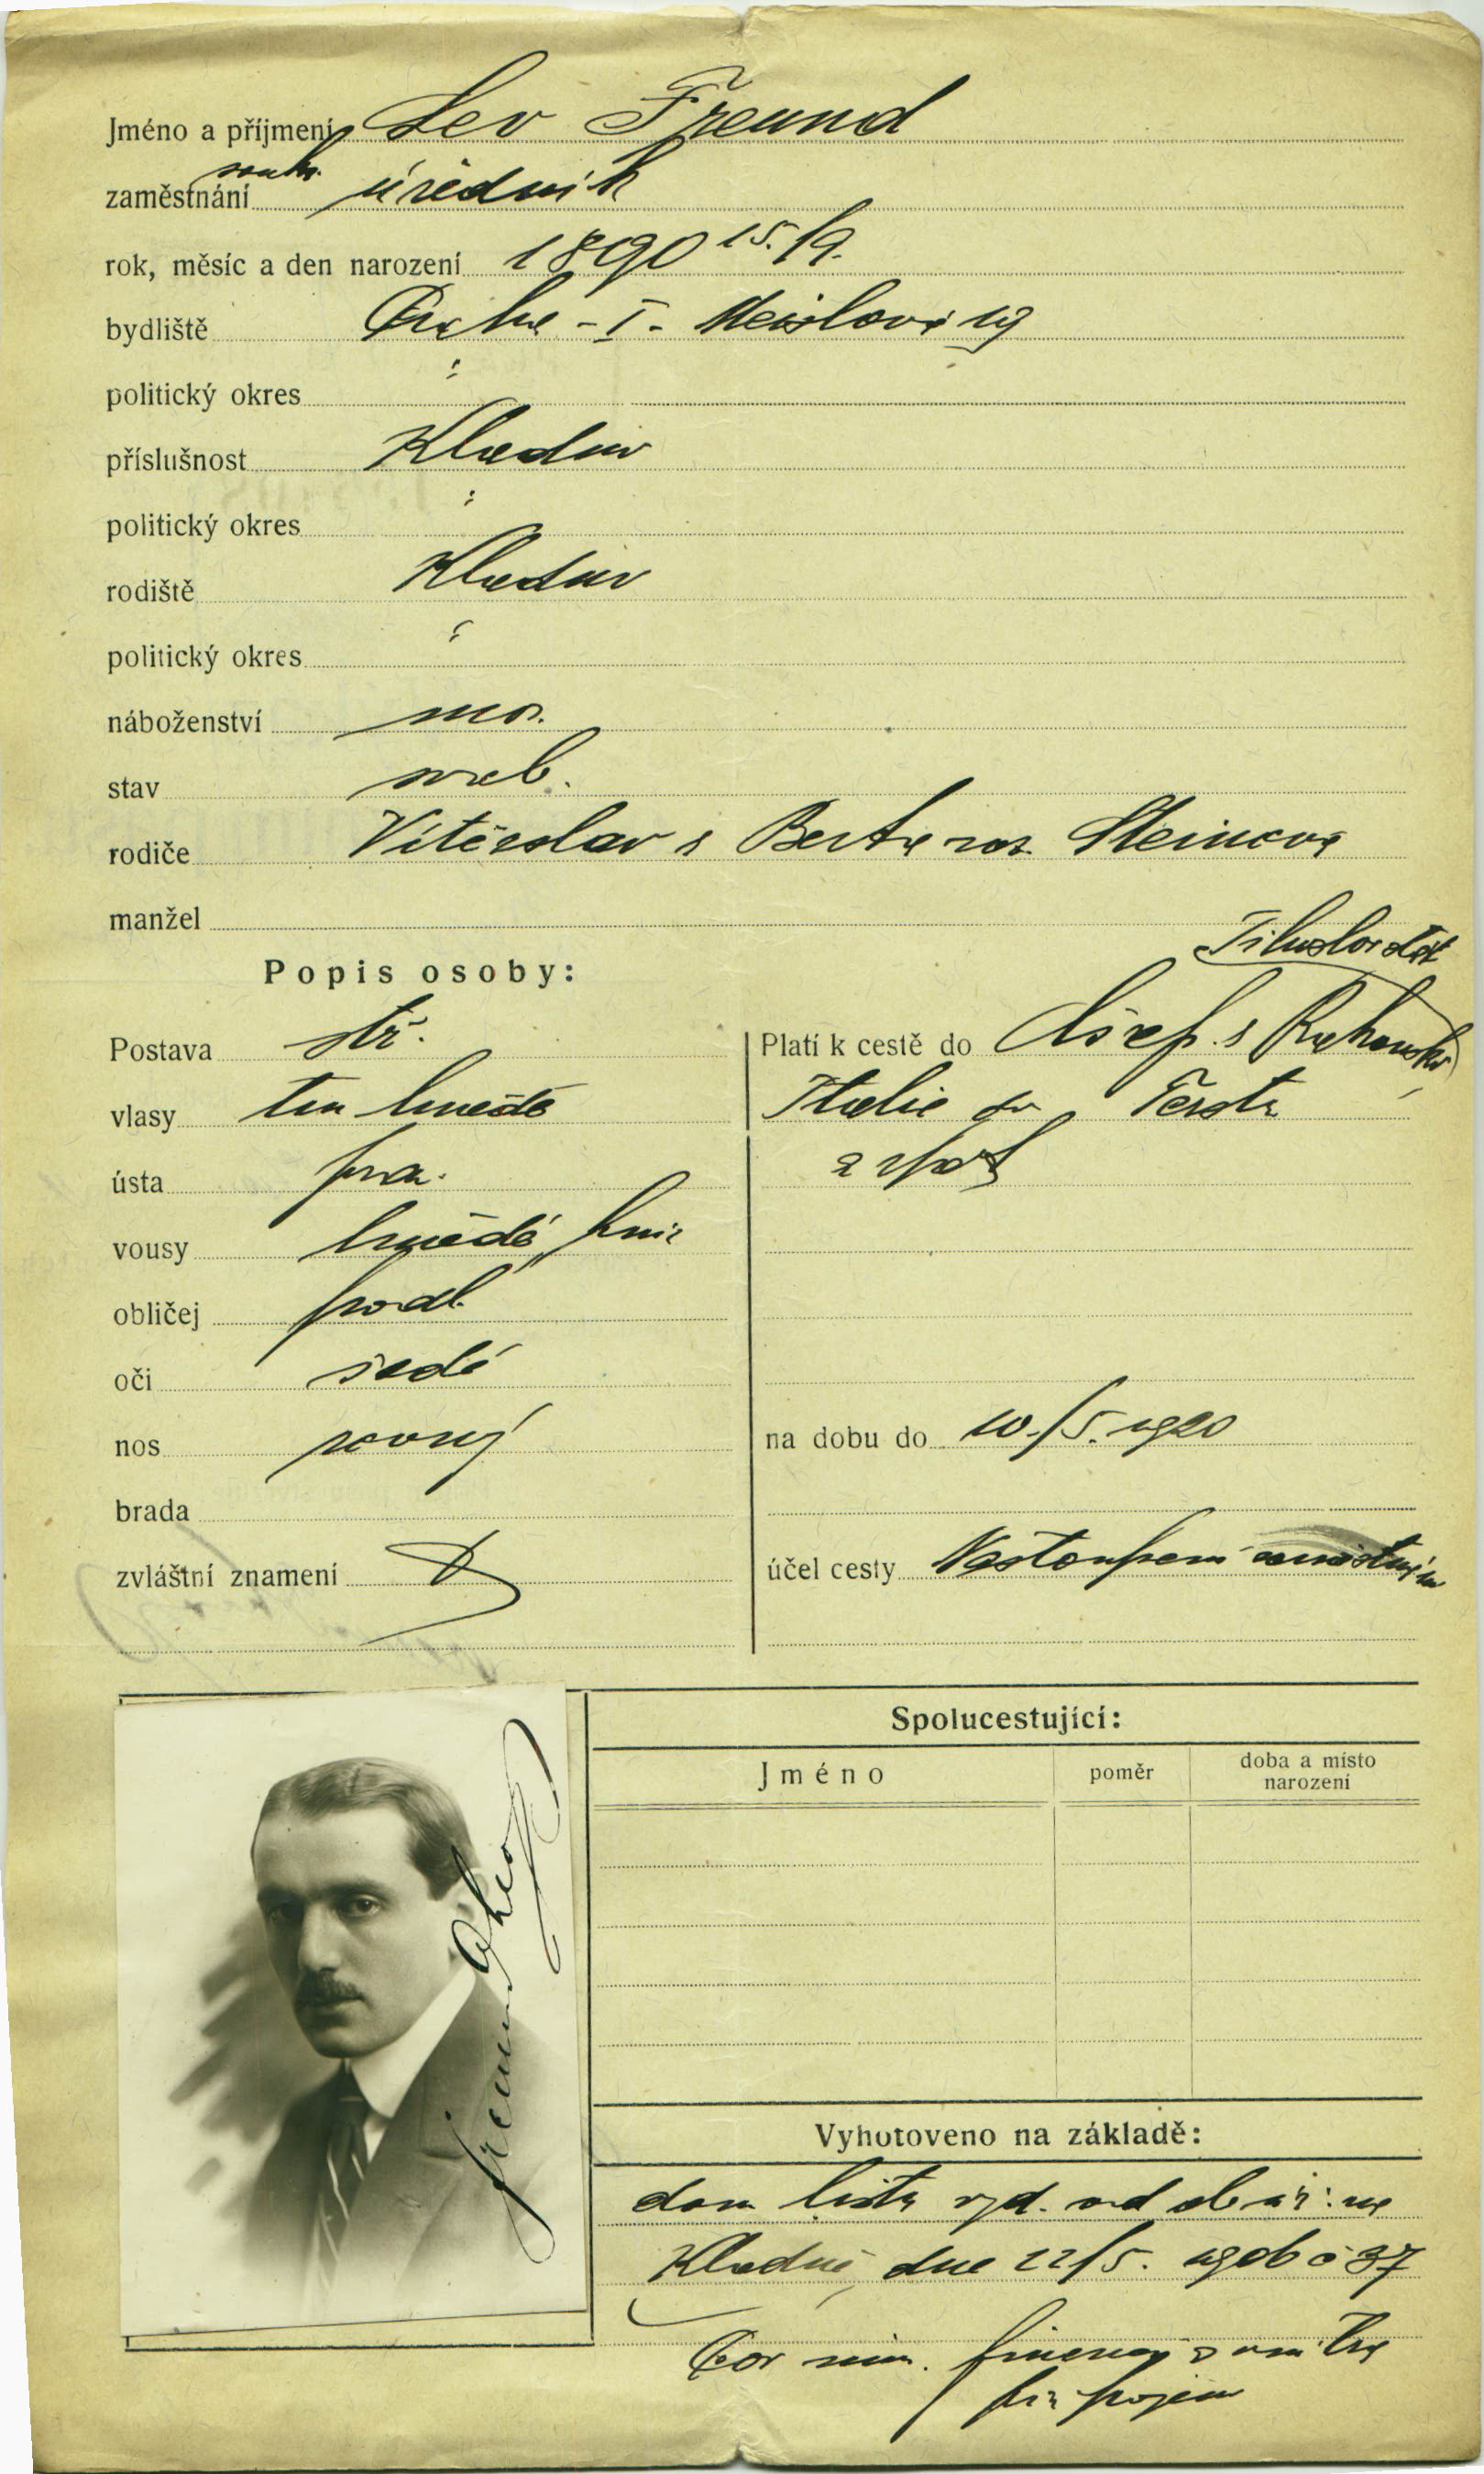 Jméno a příjmení Lev Freund
zaměstnání soukr. úředník
rok, měsíc a den narození 1890 15./9.
bydliště Praha - I. Meislova 19
politický okres "
příslušnost Kladno
politický okres "
rodiště Kladno
politický okres "
náboženství moj.
stav svob.
rodiče Vítězslav a Berta roz. Steinova
manžel
Popis osoby:
Postava stř.
vlasy tm hnědé
ústa prav.
vousy hnědé, knír
obličej podl.
oči šedé
nos rovný
brada
zvláštní znamení
Platí k cestě do Rakouska
Italie do Terstu
a zpět
na dobu do 10./5. 1920
účel cesty Nastoupení
Spolucestující:
Jméno
poměr
doba a místo
narození
Freund Leo
Vyhotoveno na základě:
dom listu vyd. od ob. úř. na
Kladně, dne 22/5. 1906 č 37
min. financí